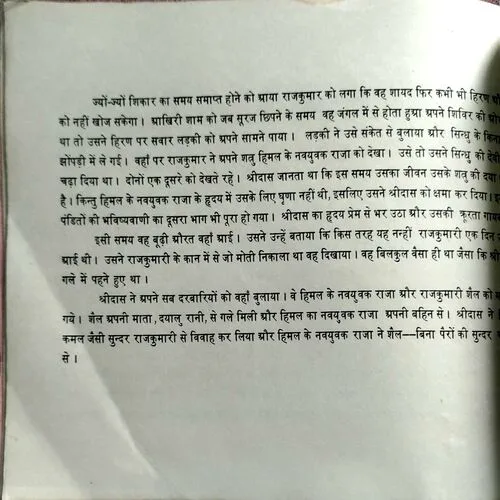 ज्यों-ज्यों शिकार का समय समाप्त होने को आया राजकुमार को लगा कि वह शायद फिर कभी भी हिरण
को नहीं खोज सकेगा। आखिरी शाम को जब सूरज छिपने के समय वह जंगल में से होता हुआ अपने शिविर की
था तो उसने हिरण पर सवार लड़की को अपने सामने पाया। लड़की ने उसे संकेत से बुलाया और सिन्धु के
झोंपड़ी में ले गई। वहाँ पर राजकुमार ने अपने शत्रु हिमल के नवयुवक राजा को देखा। उसे तो उसने सिन्धु की
चढ़ा दिया था। दोनों एक दूसरे को देखते रहे। श्रीदास जानता था कि इस समय उसका जीवन उसके शत्रु की
है। किन्तु हिमल के नवयुवक राजा के हृदय में उसके लिए घृणा नहीं थी, इसलिए उसने श्रीदास को क्षमा कर दिया।
पंडितों की भविष्यवाणी का दूसरा भाग भी पूरा हो गया। श्रीदास का हृदय प्रेम से भर उठा और उसकी क्रूरता
इसी समय वह बूढ़ी औरत वहाँ आई। उसने उन्हें बताया कि किस तरह यह नन्हीं राजकुमारी एक दिन
आई थी। उसने राजकुमारी के कान में से जो मोती निकाला था वह दिखाया। वह बिलकुल वैसा ही था जैसा कि
गले में पहने हुए था।
श्रीदास ने अपने सब दरबारियों को वहाँ बुलाया। वे हिमल के नवयुवक राजा और राजकुमारी शैल को
गये। शैल अपनी माता, दयालु रानी, से गले मिली और हिमल का नवयुवक राजा अपनी बहिन से। श्रीदास ने
कमल जैसी सुन्दर राजकुमारी से विवाह कर लिया और हिमल के नवयुवक राजा ने शैल—बिना पैरों की सुन्दर
से।